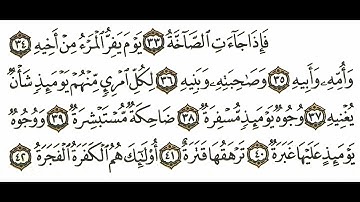 فَإِذَا جَآءَتِ ٱلصَّآخَّةُ ٣٣ يَوْمَ يَفِرُّ ٱلْمَرْءُ مِنْ أَخِيهِ ٣٤
وَأُمِّهِۦ وَأَبِيهِ ٣٥ وَصَٰحِبَتِهِۦ وَبَنِيهِ ٣٦ لِكُلِّ ٱمْرِئٍ مِّنْهُمْ يَوْمَئِذٍ شَأْنٌ
يُغْنِيهِ ٣٧ وُجُوهٌ يَوْمَئِذٍ مُّسْفِرَةٌ ٣٨ ضَاحِكَةٌ مُّسْتَبْشِرَةٌ ٣٩ وَوُجُوهٌ
يَوْمَئِذٍ عَلَيْهَا غَبَرَةٌ ٤٠ تَرْهَقُهَا قَتَرَةٌ ٤١ أُو۟لَٰٓئِكَ هُمُ ٱلْكَفَرَةُ ٱلْفَجَرَةُ ٤٢